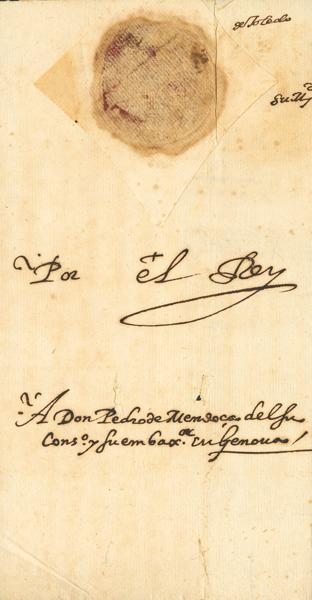 de Toledo
Su M.d
Por el Rey
A Don Pedro de Mendoça del Su
Cons.o y su embax.or en Genoua